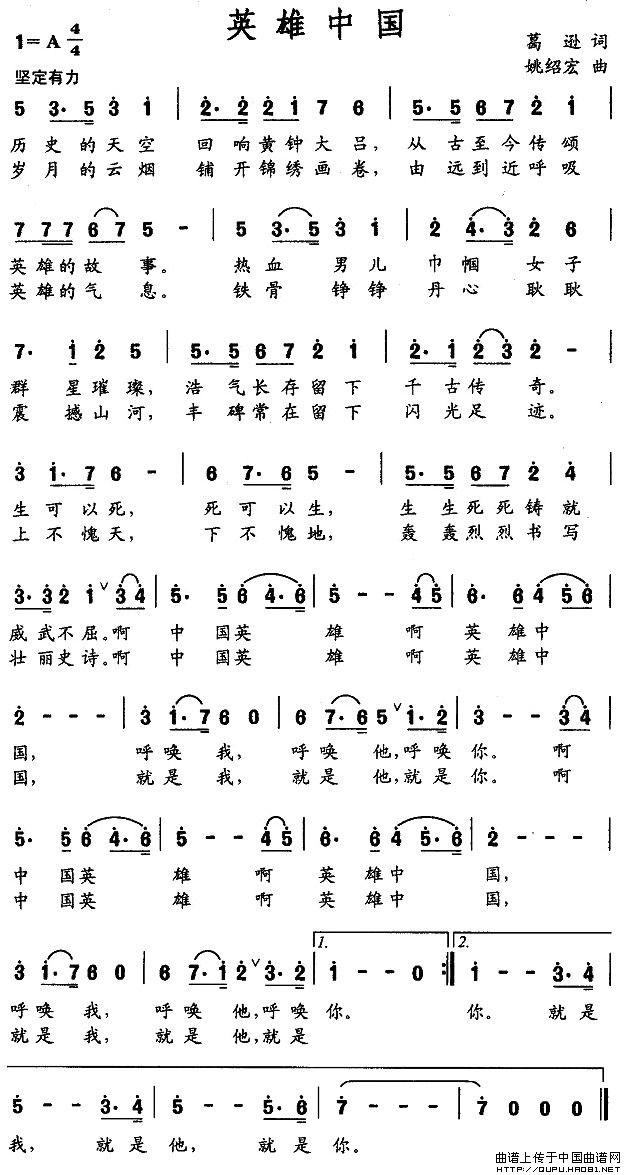 英雄中国
1=A 4/4
葛逊词
姚绍宏 曲
坚定有力
5 3·5 3 1 | 2·2 2 1 7 6 | 5·5 6 7 2 1 |
历史的天空 回响黄钟大吕, 从古至今传颂
岁月的云烟 铺开锦绣画卷, 由远到近呼吸
7 7 7 6 7 5 - | 5 3·5 3 1 | 2 4·3 2 6 |
英雄的故事。 热血男儿 巾帼女子
英雄的气息。 铁骨铮铮 丹心耿耿
7· 1 2 5 | 5·5 6 7 2 1 | 2·1 2 3 2 - |
群星璀璨, 浩气长存留下 千古传奇。
震撼山河, 丰碑常在留下 闪光足迹。
3 1·7 6 - | 6 7·6 5 - | 5·5 6 7 2 4 |
生可以死, 死可以生, 生生死死铸就
上不愧天, 下不愧地, 轰轰烈烈书写
3·3 2 1 ∨ 3 4 | 5· 5 6 4·6 | 5 - - 4 5 | 6· 6 4 5 6 |
威武不屈。啊 中国英雄 啊 英雄中
壮丽史诗。啊 中国英雄 啊 英雄中
2 - - - | 3 1·7 6 0 | 6 7·6 5 ∨ 1·2 | 3 - - 3 4 |
国, 呼唤我, 呼唤他,呼唤你。 啊
国, 就是我, 就是他,就是你。 啊
5· 5 6 4·6 | 5 - - 4 5 | 6· 6 4 5·6 | 2 - - - |
中国英雄 啊 英雄中国,
中国英雄 啊 英雄中国,
1. 2.
3 1·7 6 0 | 6 7·1 2 ∨ 3·2 | 1 - - 0 :| 1 - - 3·4 |
呼唤我, 呼唤他,呼唤你。 你。 就是
就是我, 就是他,就是
5 - - 3·4 | 5 - - 5·6 | 7 - - - | 7 0 0 0 ||
我, 就是他, 就是你。
曲谱上传于中国曲谱网
HTTP://QUPU.HAO81.NET